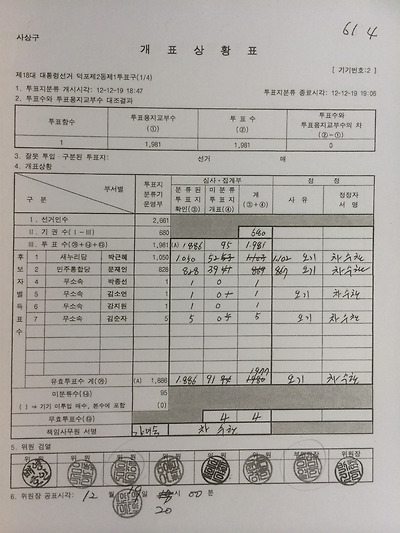 61 4
사상구
개 표 상 황 표
[ 기기번호:2 ]
제18대 대통령선거 덕포제2동제1투표구(1/4)
1. 투표지분류 개시시각: 12-12-19 18:47 투표지분류 종료시각: 12-12-19 19:06
2. 투표수와 투표용지교부수 대조결과
투표함수 투표용지교부수 (①) 투표수 (②) 투표수와 투표용지교부수의 차 (②-①)
1 1,981 1,981 0
3. 잘못 투입·구분된 투표지: 선거 매
4. 개표상황
구 분 부서별 투표지분류기운영부 심사·집계부 정정
분류된투표지확인(③) 미분류투표지개표(④) 계(③+④) 사유 정정자서명
Ⅰ. 선거인수 2,661
Ⅱ. 기권수(Ⅰ-Ⅲ) 680 680
Ⅲ. 투표수 1,981 (A) 1.886 95 1.981
후보자별득표수
1 새누리당 박근혜 1,050 1.050 52 1102 오기
2 민주통합당 문재인 828 828 39 867 오기
4 무소속 박종선 1 1 0 1
5 무소속 김소연 1 1 0 1 오기
6 무소속 강지원 1 1 0 1
7 무소속 김순자 5 5 0 5 오기
유효투표수 계 (A) 1,886 1.886 91 1977 오기
미분류수 95
( ) ⇒ 기기 미투입 매수, 본수에 포함 (0)
무효투표수 4 4
책임사무원 서명
5. 위원 검열
위원 위원 위원 위원 위원 위원 부위원장 위원장
6. 위원장 공표시각: 12 월 19일 시 00 분
20